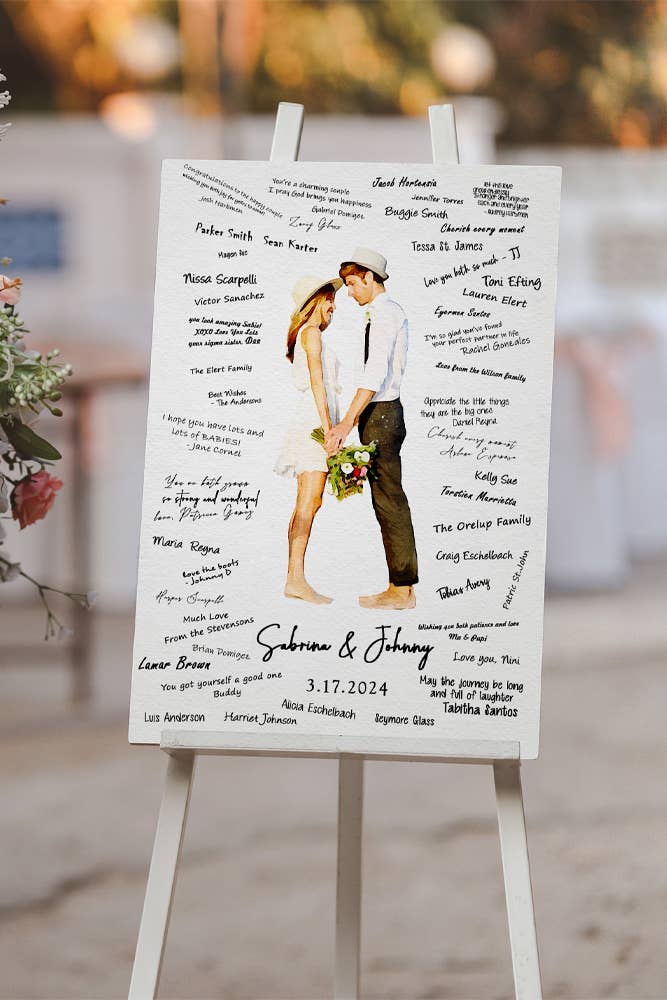 Congratulations to the happy couple
wishing you both joy for years to come!
Josh Hardeman
You're a charming couple
I pray God brings you happiness
Gabriel Domigez
Zoey Glass
Jacob Hortensia
Jennifer Torres
Buggie Smith
let this love
grow endlessly
stronger and brighter
each and every year
Cherish every moment
Parker Smith
Sean Karter
Tessa St. James
Love you both so much - JJ
Nissa Scarpelli
Victor Sanachez
Toni Efting
Lauren Elert
Eyermen Santos
you look amazing Sabie!
XOXO Love You Lots
your sigma sister, Dee
I'm so glad you've found
your perfect partner in life
Rachel Gonzales
The Elert Family
Love from the Wilson family
Best Wishes
- The Andersons
Appriciate the little things
they are the big ones
Daniel Reyna
I hope you have lots and
Lots of BABIES!
-Jane Cornel
Cherish every moment
Kelly Sue
Torstien Marrietta
You've both grown
so strong and wonderful
love, Patricia Gomez
The Orelup Family
Maria Reyna
Craig Eschelbach
Love the boots
- Johnny D
Tobias Avery
Patric St.John
Harper Scarpelli
Much Love
From the Stevensons
Wishing you both patience and love
Ma & Papi
Brian Domigez
Sabrina & Johnny
Love you, Nini
Lamar Brown
3.17.2024
You got yourself a good one
Buddy
May the journey be long
and full of laughter
Tabitha Santos
Alicia Eschelbach
Luis Anderson
Harriet Johnson
Seymore Glass